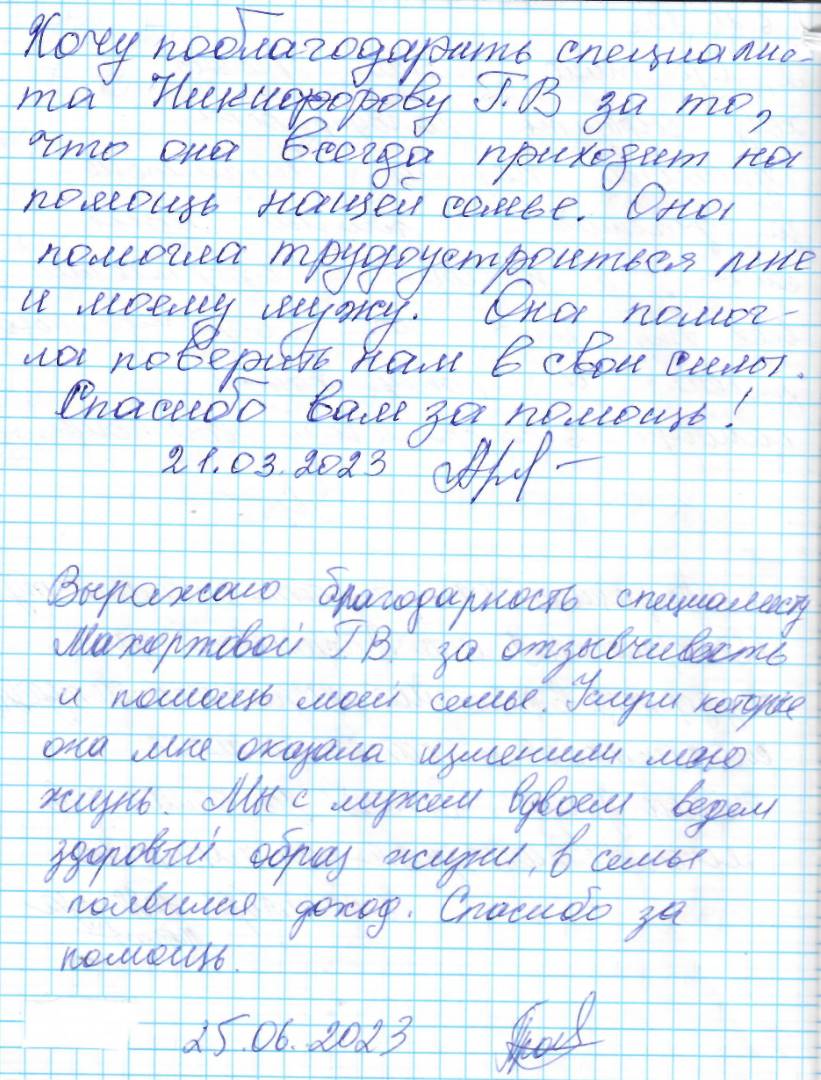 Хочу поблагодарить специалис-
та Никифорову Г.В за то,
что она всегда приходит на
помощь нашей семье. Она
помогла трудоустроиться мне
и моему мужу. Она помог-
ла поверить нам в свои силы.
Спасибо вам за помощь!
21.03.2023
Выражаю благодарность специалисту
Махортовой Г В за отзывчивость
и помощь моей семье. Услуги которые
она мне оказала изменили мою
жизнь. Мы с мужем вдвоем ведем
здоровый образ жизни, в семье
появился доход. Спасибо за
помощь.
25.06.2023